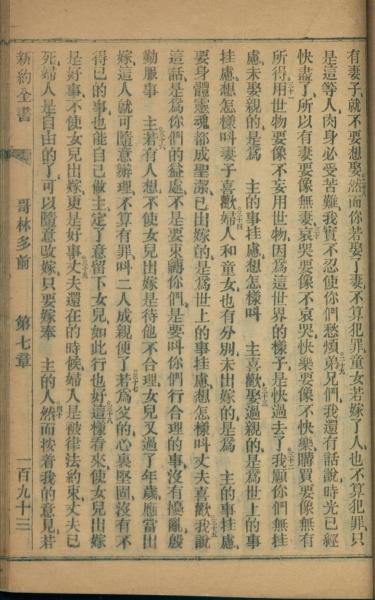 有妻子、就不要想娶、然而你若娶了妻、不算犯罪、童女若嫁了人、也不算犯罪、只
是這等人肉身必受苦難、我實不忍使你們愁煩、弟兄們、我還有話說、時光已經
快盡了、所以有妻要像無妻、哀哭要像不哀哭、快樂要像不快樂、購買要像無有
所得、用世物要像不妄用世物、因為這世界的樣子、是快過去了、我願你們無掛
慮、未娶親的是為　主的事掛慮、想怎樣叫　主喜歡、娶過親的、是為世上的事
掛慮、想怎樣叫妻子喜歡、婦人和童女也有分別、未出嫁的、是為　主的事掛慮、
要身體靈魂都成聖潔、已出嫁的、是為世上的事掛慮、想怎樣叫丈夫喜歡、我說
這話、是為你們的益處、不是要牢籠你們、是要叫你們行合理的事、沒有擾亂、殷
勤服事　主、若有人想不使女兒出嫁、是待他不合理、女兒又過了年歲、應當出
嫁、這人就可隨意辦理、不算有罪、叫二人成親便了、若為父的心裏堅固、沒有不
得已的事、也能自己做主、定了意留下女兒、如此行也好、這樣看來、使女兒出嫁
是好事、不使女兒出嫁更是好事、丈夫還在的時候、婦人是被律法約束、丈夫已
死、婦人是自由的了、可以隨意改嫁、只要嫁奉　主的人、然而按着我的意見、若
新約全書　哥林多前　第七章　一百九十三